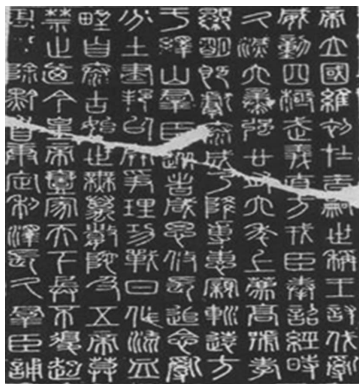 帝立國維初在昔嗣世稱王討伐亂
威動四極武義直方戎臣奉詔經時
久滅六暴強廿有六年上薦高號孝
顯明既獻泰成乃降專惠親巡遠方
于繹山群臣從者咸思攸長追念亂
分土建邦以開爭理功戰日作流血
野自泰古始世無萬數陀及五帝莫
禁止迺今皇帝壹家天下兵不復起
害滅除黔首康定利澤長久群臣誦